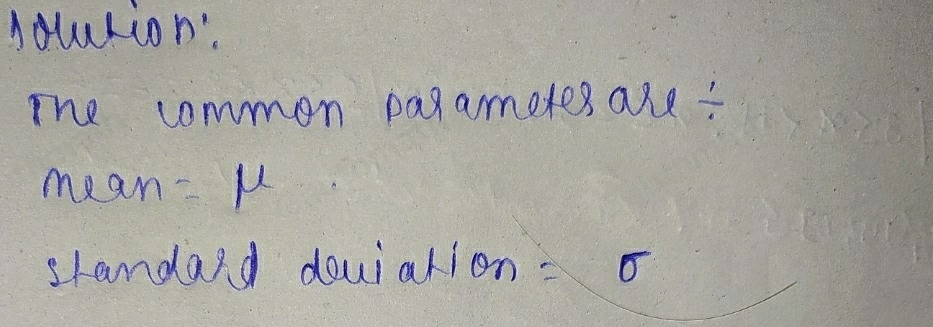 solution:
The common parameters are ÷
mean = μ
standard deviation = σ